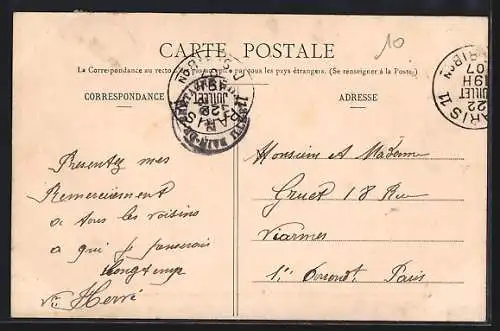 10
CARTE POSTALE
La Correspondance au recto n'est pas acceptée par tous les pays étrangers. (Se renseigner à la Poste.)
CORRESPONDANCE
ADRESSE
PARIS 11
22
JUILLET
19H
07
PARIS
JUILLET
Presentez mes
Remerciement
a tous les voisins
a qui je penserais
longtemps
Hervé
Monsieur et Madame
Gruet 18 Rue
Viarmes
Paris